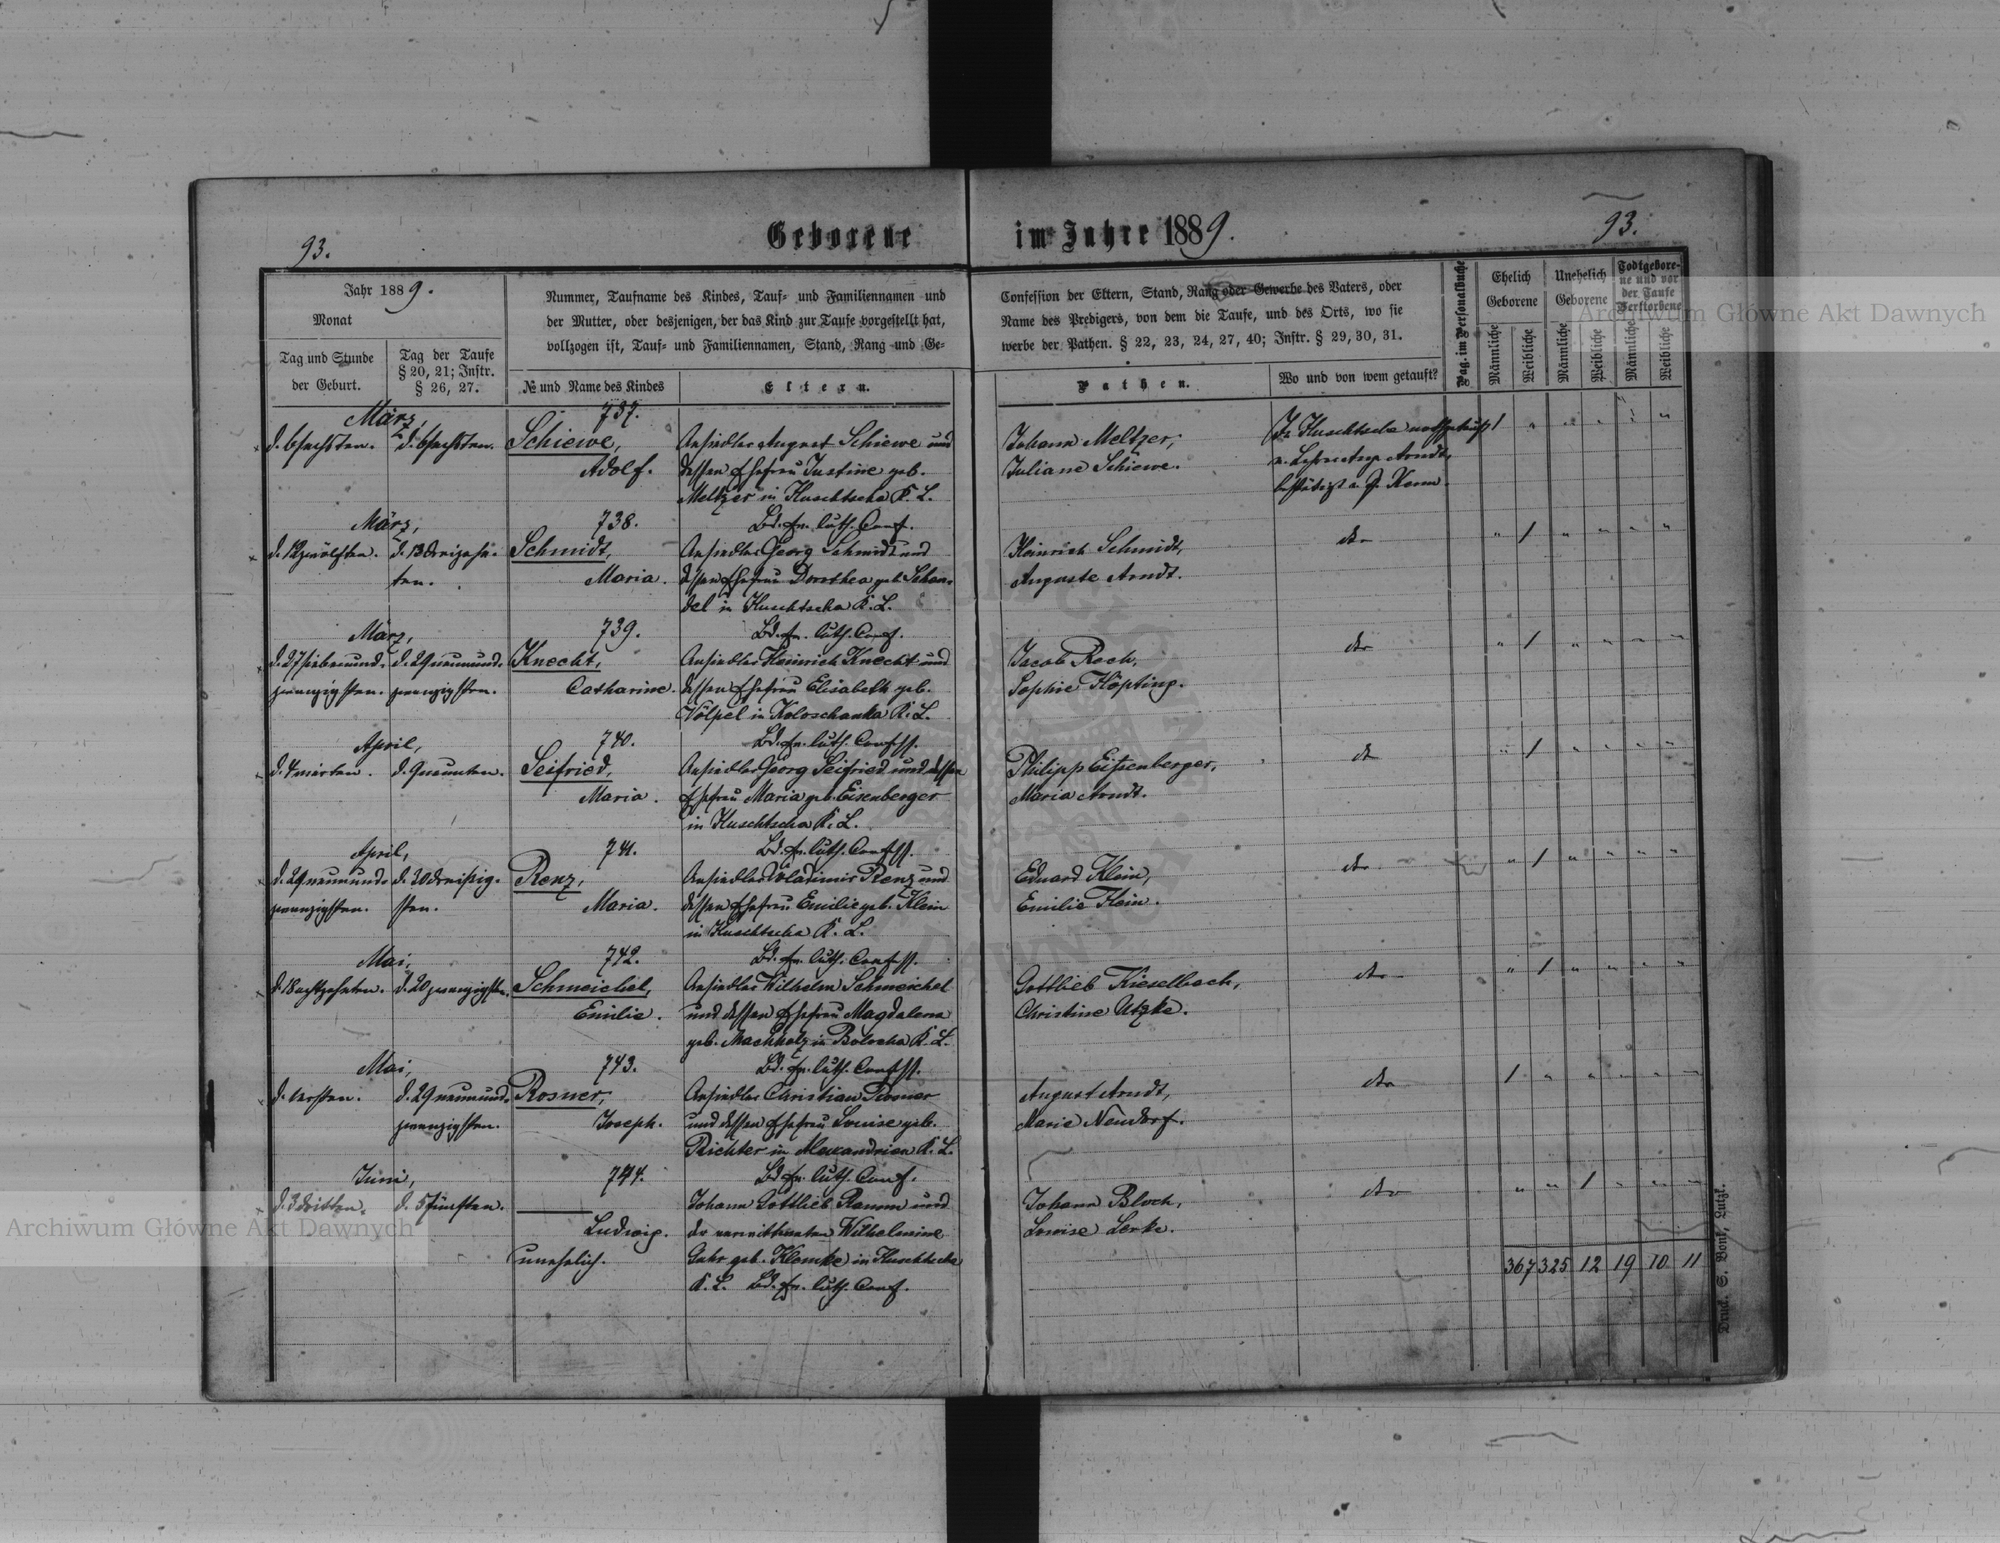 Geborene im Jahre 1889.
93.
93.
Jahr 1889.
Monat
Tag und Stunde
der Geburt.
Tag der Taufe
§ 20, 21; Instr.
§ 26, 27.
Nummer, Taufname des Kindes, Tauf- und Familiennamen und
der Mutter, oder desjenigen, der das Kind zur Taufe vorgestellt hat,
vollzogen ist, Tauf- und Familiennamen, Stand, Rang und Ge-
№ und Name des Kindes
Eltern.
Confession der Eltern, Stand, Rang oder Gewerbe des Vaters, oder
Name des Predigers, von dem die Taufe, und des Orts, wo sie
werbe der Pathen. § 22, 23, 24, 27, 40; Instr. § 29, 30, 31.
Pathen.
Wo und von wem getauft?
Pag. im Personalbuche
Ehelich
Geborene
Unehelich
Geborene
Todtgebore-
ne und vor
der Taufe
Verstorbene
Männliche
Weibliche
Männliche
Weibliche
Männliche
Weibliche
März,
737.
d. 6 sechsten. d. 6 sechsten. Schiewe,
Adolf.
Ansiedler August Schiewe und
dessen Ehefrau Justine geb.
Meltzer in Kuschtscha K. L.
Bd. ev. luth. Conf.
Johann Meltzer,
Juliane Schiewe.
In Kuschtscha
Arndt,
bestätigt
März,
738.
d. 12 zwölften. d. 13 dreizehn-
ten.
Schmidt,
Maria.
Ansiedler Georg Schmidt und
dessen Ehefrau Dorothea geb. Schan-
del in Kuschtscha K. L.
Bd. ev. luth. Conf.
Heinrich Schmidt,
Auguste Arndt.
dto
März,
739.
d. 27 siebenund- d. 29 neunund-
zwanzigsten. zwanzigsten.
Knecht,
Catharine.
Ansiedler Heinrich Knecht und
dessen Ehefrau Elisabeth geb.
Völpel in Koloschanka K. L.
Bd. ev. luth. Confess.
Jacob Roch,
Sophie Köpting.
dto
April,
740.
d. 4 vierten. d. 9 neunten. Seifried,
Maria.
Ansiedler Georg Seifried und dessen
Ehefrau Maria geb. Eisenberger
in Kuschtscha K. L.
Bd. ev. luth. Confess.
Philipp Eisenberger,
Maria Arndt.
dto
April,
741.
d. 29 neunund- d. 30 dreißig-
zwanzigsten. sten.
Renz,
Maria.
Ansiedler Wladimir Renz und
dessen Ehefrau Emilie geb. Klein
in Kuschtscha K. L.
Bd. ev. luth. Confess.
Eduard Klein,
Emilie Klein.
dto
Mai,
742.
d. 18 achtzehnten. d. 20 zwanzigsten. Schmeichel,
Emilie.
Ansiedler Wilhelm Schmeichel
und dessen Ehefrau Magdalena
geb. Machholz in Bolocha K. L.
Bd. ev. luth. Confess.
Gottlieb Kieselbach,
Christine Utzke.
dto
Mai,
743.
d. ersten. d. 29 neunund-
zwanzigsten.
Rosner,
Joseph.
Ansiedler Christian Rosner
und dessen Ehefrau Louise geb.
Richter in Alexandrien K. L.
Bd. ev. luth. Conf.
August Arndt,
Marie Neudorf.
dto
Juni,
744.
d. 3 dritten. d. 5 fünften.
Ludwig.
unehelich.
Johann Gottlieb Ramm und
der verwittweten Wilhelmine
geb. Klemke in Kuschtscha
K. L. Bd. ev. luth. Conf.
Johann Bloch,
Louise Lerke.
dto
367 325 12 19 10 11
Druck. S. Bonk, Lutzk.
Archiwum Główne Akt Dawnych
Archiwum Główne Akt Dawnych